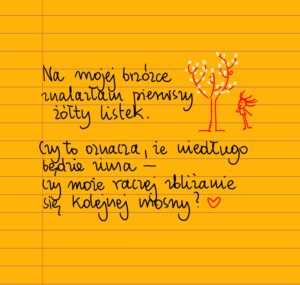 Na mojej brzózce
znalazłam pierwszy
żółty listek.
Czy to oznacza, że niedługo
będzie zima —
czy może raczej zbliżanie
się kolejnej wiosny?